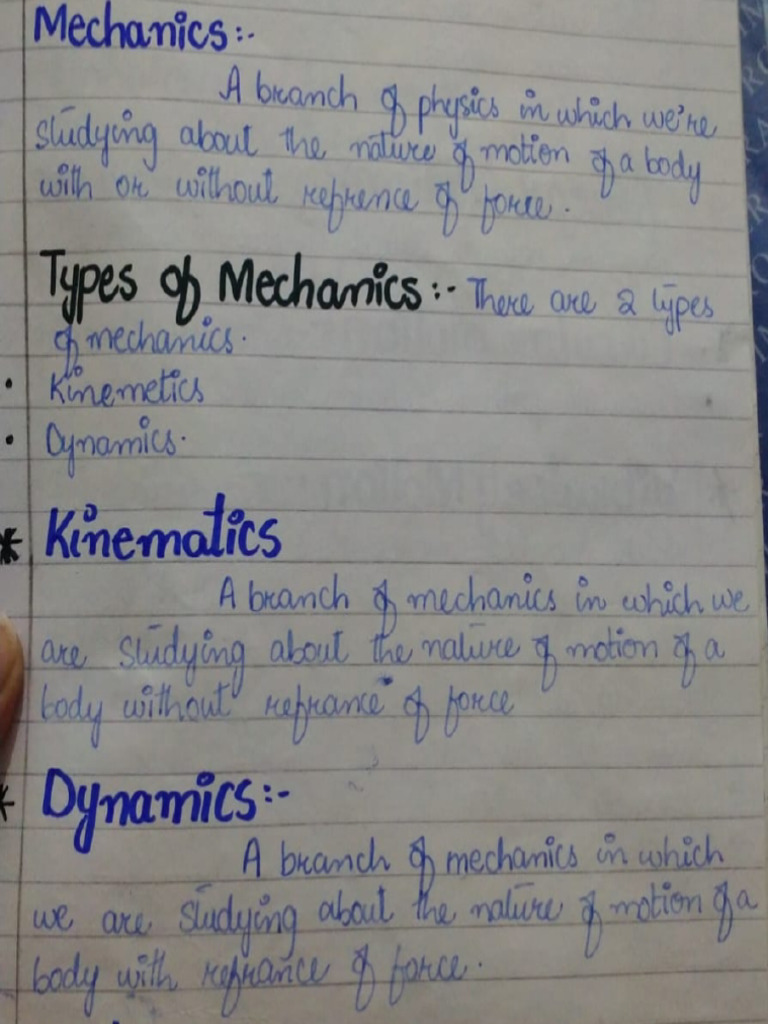 Mechanics:-
A branch of physics in which we're
studying about the nature of motion of a body
with or without refrence of force.
Types of Mechanics:- There are 2 types
of mechanics.
• Kinemetics
• Dynamics.
* Kinematics
A branch of mechanics in which we
are studying about the nature of motion of a
body without refrance of force
* Dynamics:-
A branch of mechanics in which
we are studying about the nature of motion of a
body with refrance of force.